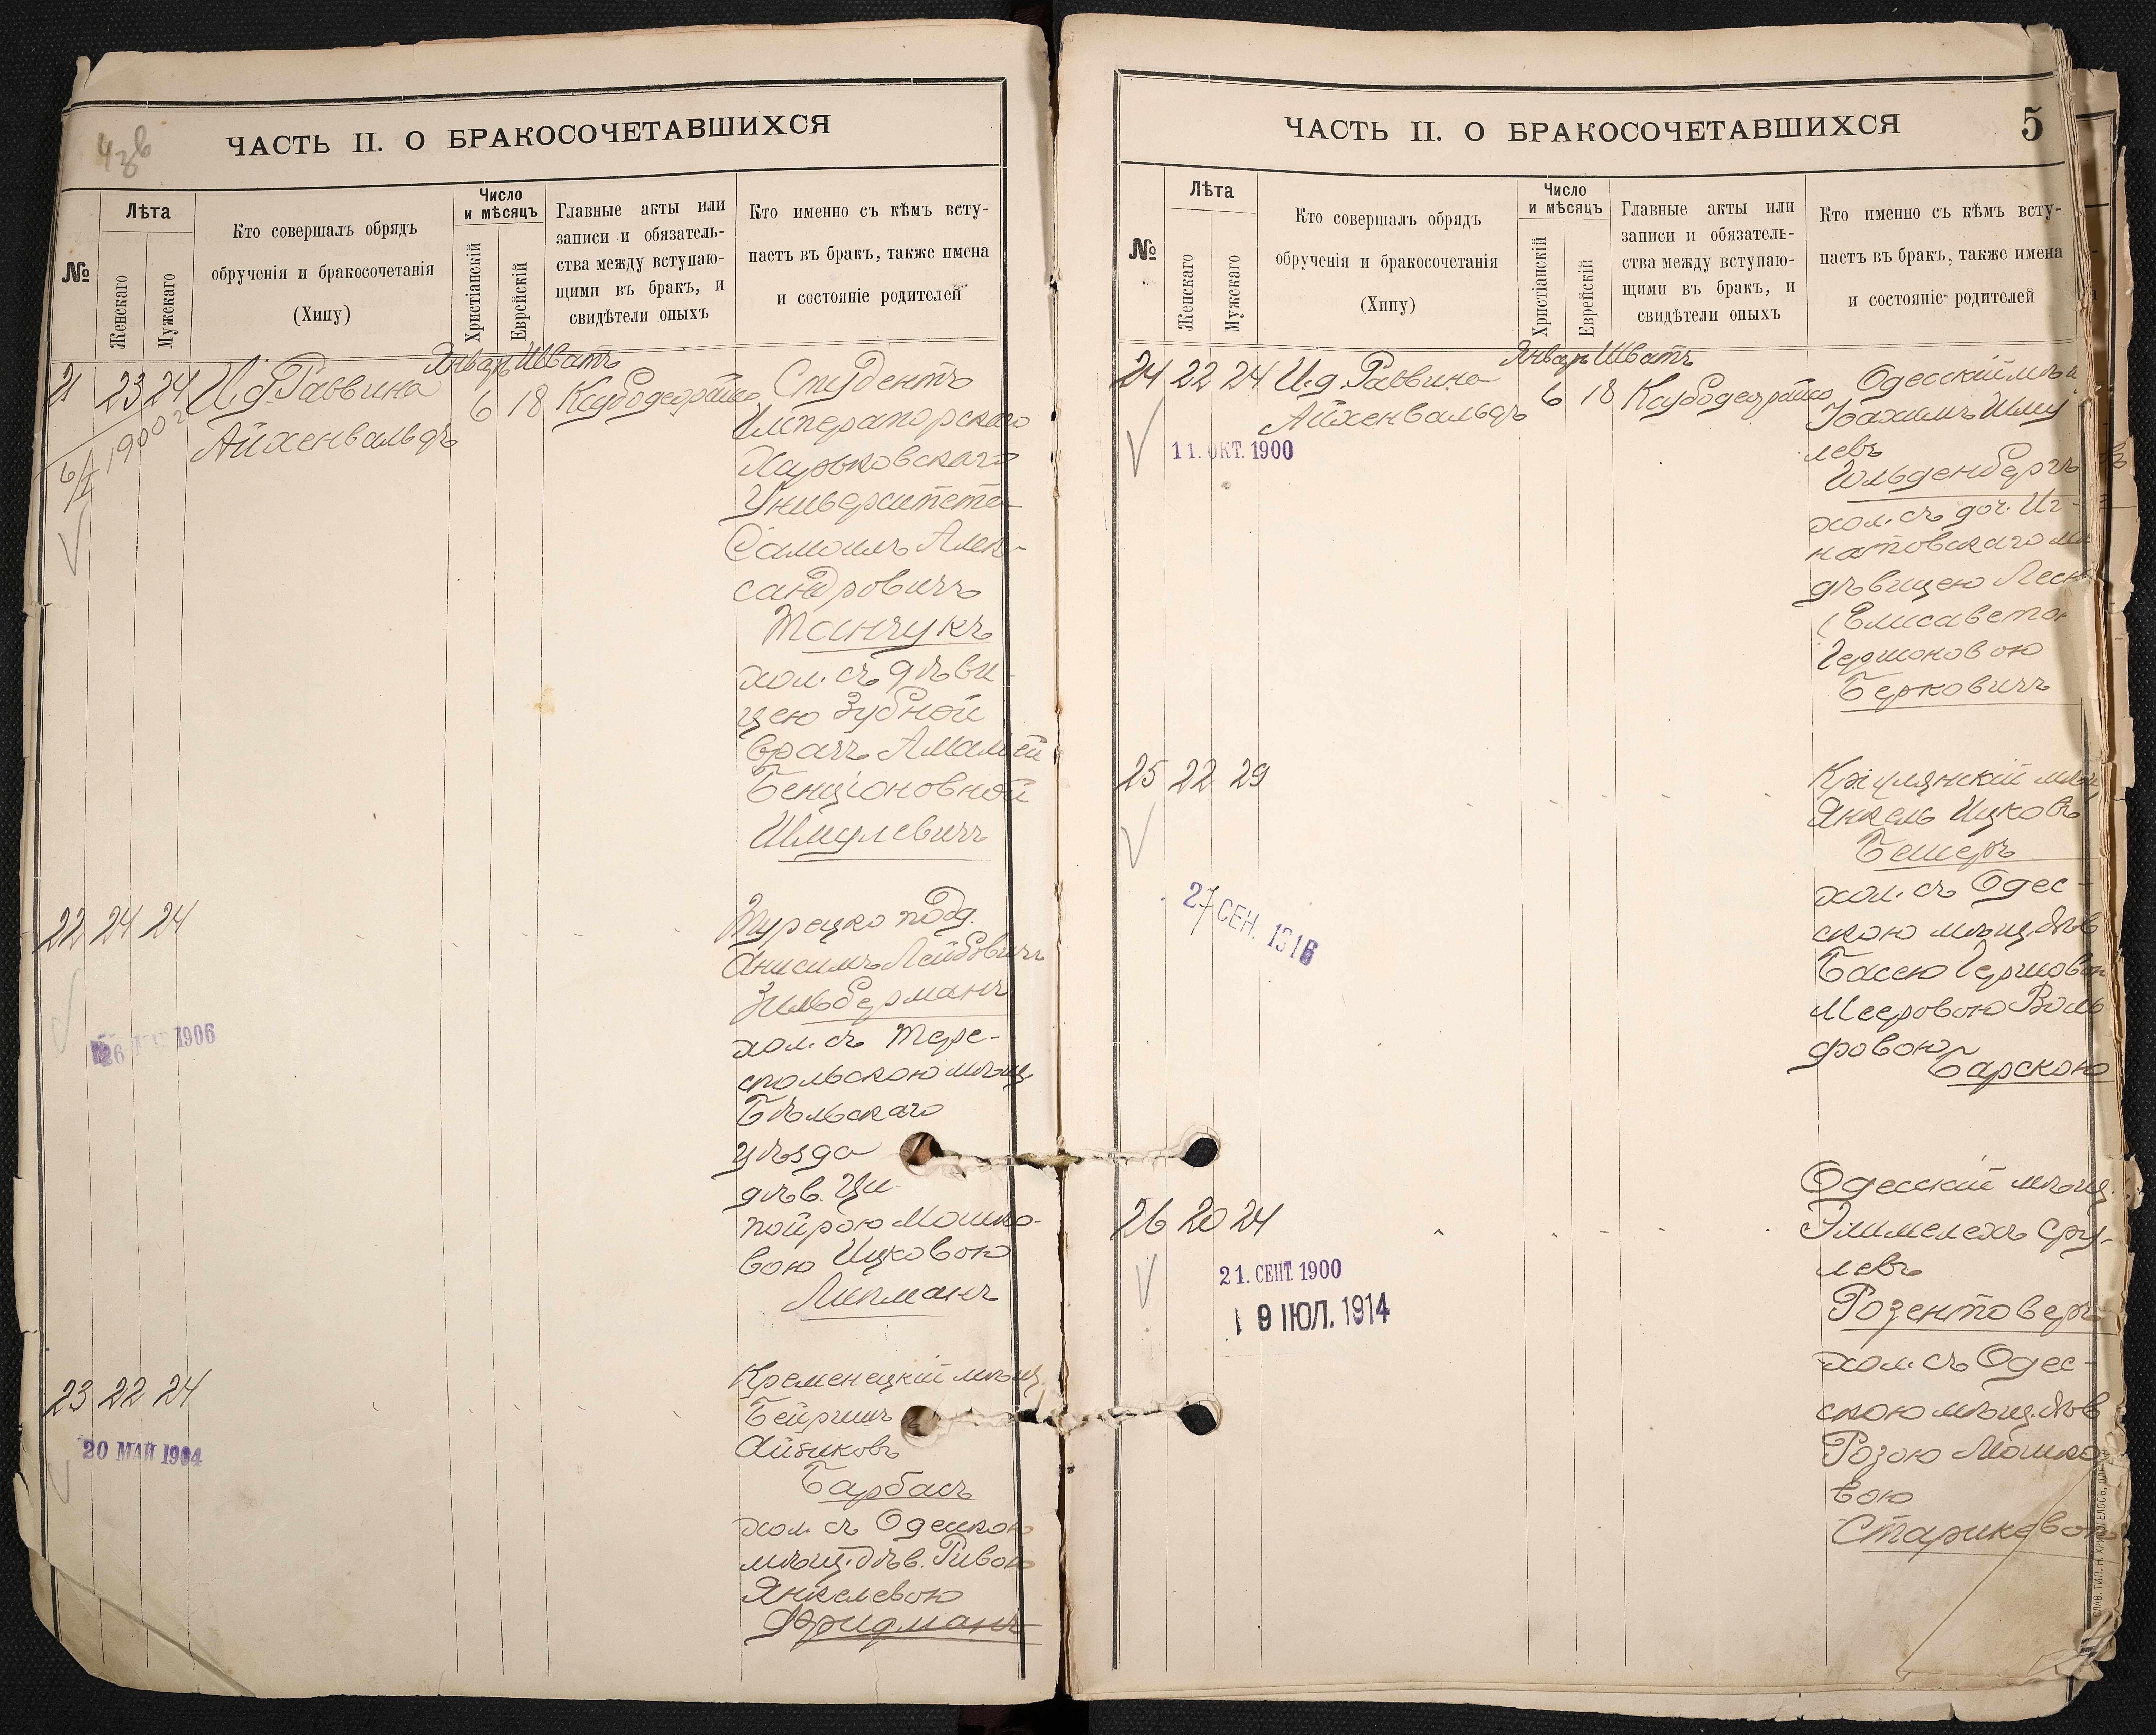 4зв
ЧАСТЬ II. О БРАКОСОЧЕТАВШИХСЯ
№
Лѣта
Женскаго
Мужскаго
Кто совершалъ обрядъ
обрученія и бракосочетанія
(Хипу)
Число
и мѣсяцъ
Христіанскій
Еврейскій
Главные акты или
записи и обязатель-
ства между вступаю-
щими въ бракъ, и
свидѣтели оныхъ
Кто именно съ кѣмъ всту-
паетъ въ бракъ, также имена
и состояніе родителей
Январь Шватъ
21 23 24 И.д. Раввина
Айхенвальдъ
6 18
6/I
Студентъ
Императорскаго
Харьковскаго
Университета
Самоилъ Алек-
сандровичъ
Танчукъ
хол. съ дѣви-
цею Зубной
врачъ Амалей
Бенціоновной
Шмулевичъ
22 24 24
1906
Турецко подд.
Анисимъ Лейбовичъ
Зильберманъ
хол. съ Тере-
спольскою мѣщ.
Бѣльскаго
уѣзда
дѣв. Ци-
пойрою Мошко-
вою Ицковою
Липманъ
23 22 24
20 МАЙ 1904
Кременецкій мѣщ.
Бейришъ
Айзиковъ
Барбасъ
хол. съ Одесскою
мѣщ. дѣв. Ривою
Янкелевою
Фридманъ
ЧАСТЬ II. О БРАКОСОЧЕТАВШИХСЯ
5
№
Лѣта
Женскаго
Мужскаго
Кто совершалъ обрядъ
обрученія и бракосочетанія
(Хипу)
Число
и мѣсяцъ
Христіанскій
Еврейскій
Главные акты или
записи и обязатель-
ства между вступаю-
щими въ бракъ, и
свидѣтели оныхъ
Кто именно съ кѣмъ всту-
паетъ въ бракъ, также имена
и состояніе родителей
Январь Шватъ
24 22 24 И.д. Раввина
Айхенвальдъ
6 18
11. ОКТ. 1900
Одесскій мѣщ
Іоахимъ Шму
левъ
Гольденбергъ
хол. съ доч. Иг-
натовскаго
дѣвицею
(Елисавето
Гершоновою
Берковичъ
25 22 29
27 СЕН. 1916
Криулянскій мѣщ
Янкель Ицковъ
Бешеръ
хол. съ Одес-
скою мѣщ. дѣв
Басею Гершовою
Мееровою Воль
фовою
Барскою
26 20 24
21. СЕНТ. 1900
19 ІЮЛ. 1914
Одесскій мѣщ.
Элимелехъ Сру-
левъ
Розентоверъ
хол. съ Одес-
скою мѣщ. дѣв
Розою Мошко
вою
Стариковою